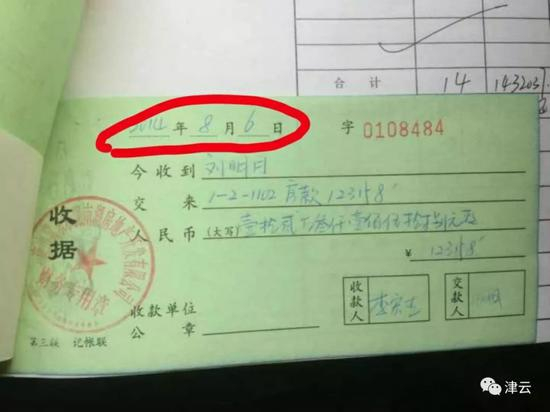 合 计 14 143203
2014 年 8 月 6 日 字 0108484
今收到 刘明月
交 来 1-2-1102房款 123158
人民币 (大写)
¥ 123158
收据
财务专用章
收款单位
公 章
收款人
交款人
第三联 记帐联
津云